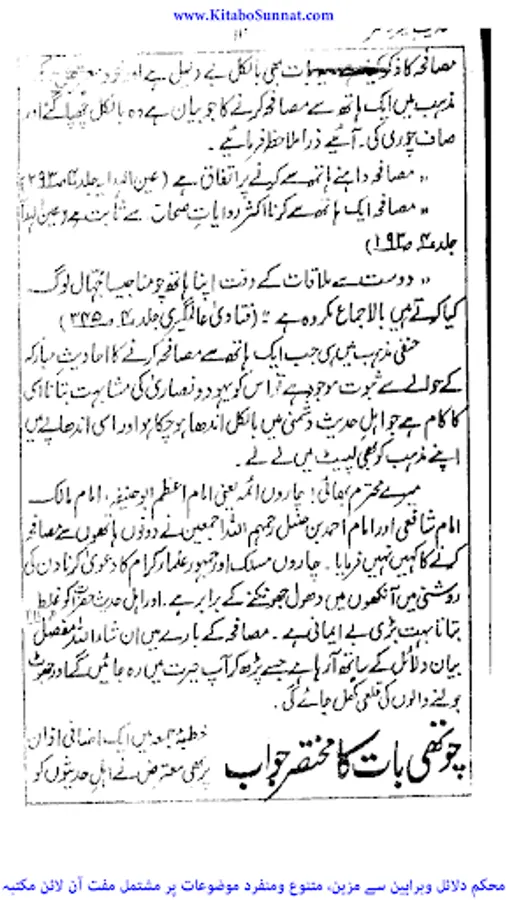 www.KitaboSunnat.com
مصافحہ کا ذکر بات بھی بالکل بے دلیل ہے اور خود
مذہب میں ایک ہاتھ سے مصافحہ کرنے کا جو بیان ہے وہ بالکل چھپا گئے اور
صاف چوری کی۔ آئیے ذرا ملاحظہ فرمائیے۔
" مصافحہ داہنے ہاتھ سے کرنے پر اتفاق ہے (عین الہدایہ جلد ۴ ص ۲۹۳)
" مصافحہ ایک ہاتھ سے کرنا اکثر روایات صحاح سے ثابت ہے (عین الہدایہ
جلد ۴ ص ۱۹۳)
" دوست سے ملاقات کے وقت اپنا ہاتھ چومنا جیسا جہال لوگ
کیا کرتے ہیں بالاجماع مکروہ ہے" (فتاویٰ عالمگیری جلد ۴ ص ۳۴۵)
حنفی مذہب میں ہی جب ایک ہاتھ سے مصافحہ کرنے کا احادیث مبارکہ
کے حوالے سے ثبوت موجود ہے تو اس کو یہود و نصاریٰ کی مشابہت بتانا اسی
کا کام ہے جو اہل حدیث دشمنی میں بالکل اندھا ہو چکا ہو اور اسی اندھاپے میں
اپنے مذہب کو بھی لپیٹ میں لے لے۔
میرے محترم بھائی! چاروں ائمہ یعنی امام اعظم ابو حنیفہ، امام مالک
امام شافعی اور امام احمد بن حنبل رحمہم اللہ اجمعین نے دونوں ہاتھوں سے مصافحہ
کرنے کا کہیں نہیں فرمایا۔ چاروں مسلک اور جمہور علماء کرام کا دعویٰ کرنا دن کی
روشنی میں آنکھوں میں دھول جھونکنے کے برابر ہے۔ اور اہل حدیث حضرات کو غلط
بتانا بہت بڑی بے ایمانی ہے۔ مصافحہ کے بارے میں ان شاء اللہ مفصل
بیان دلائل کے ساتھ آ رہا ہے جسے پڑھ کر آپ حیرت میں رہ جائیں گے اور جھوٹ
بولنے والوں کی قلعی کھل جائے گی۔
چوتھی بات کا مختصر جواب
خطبۂ جمعہ میں ایک اضافی اذان
پر بھی معترض نے اہل حدیثوں کو
محکم دلائل وبراہین سے مزین، متنوع ومنفرد موضوعات پر مشتمل مفت آن لائن مکتبہ